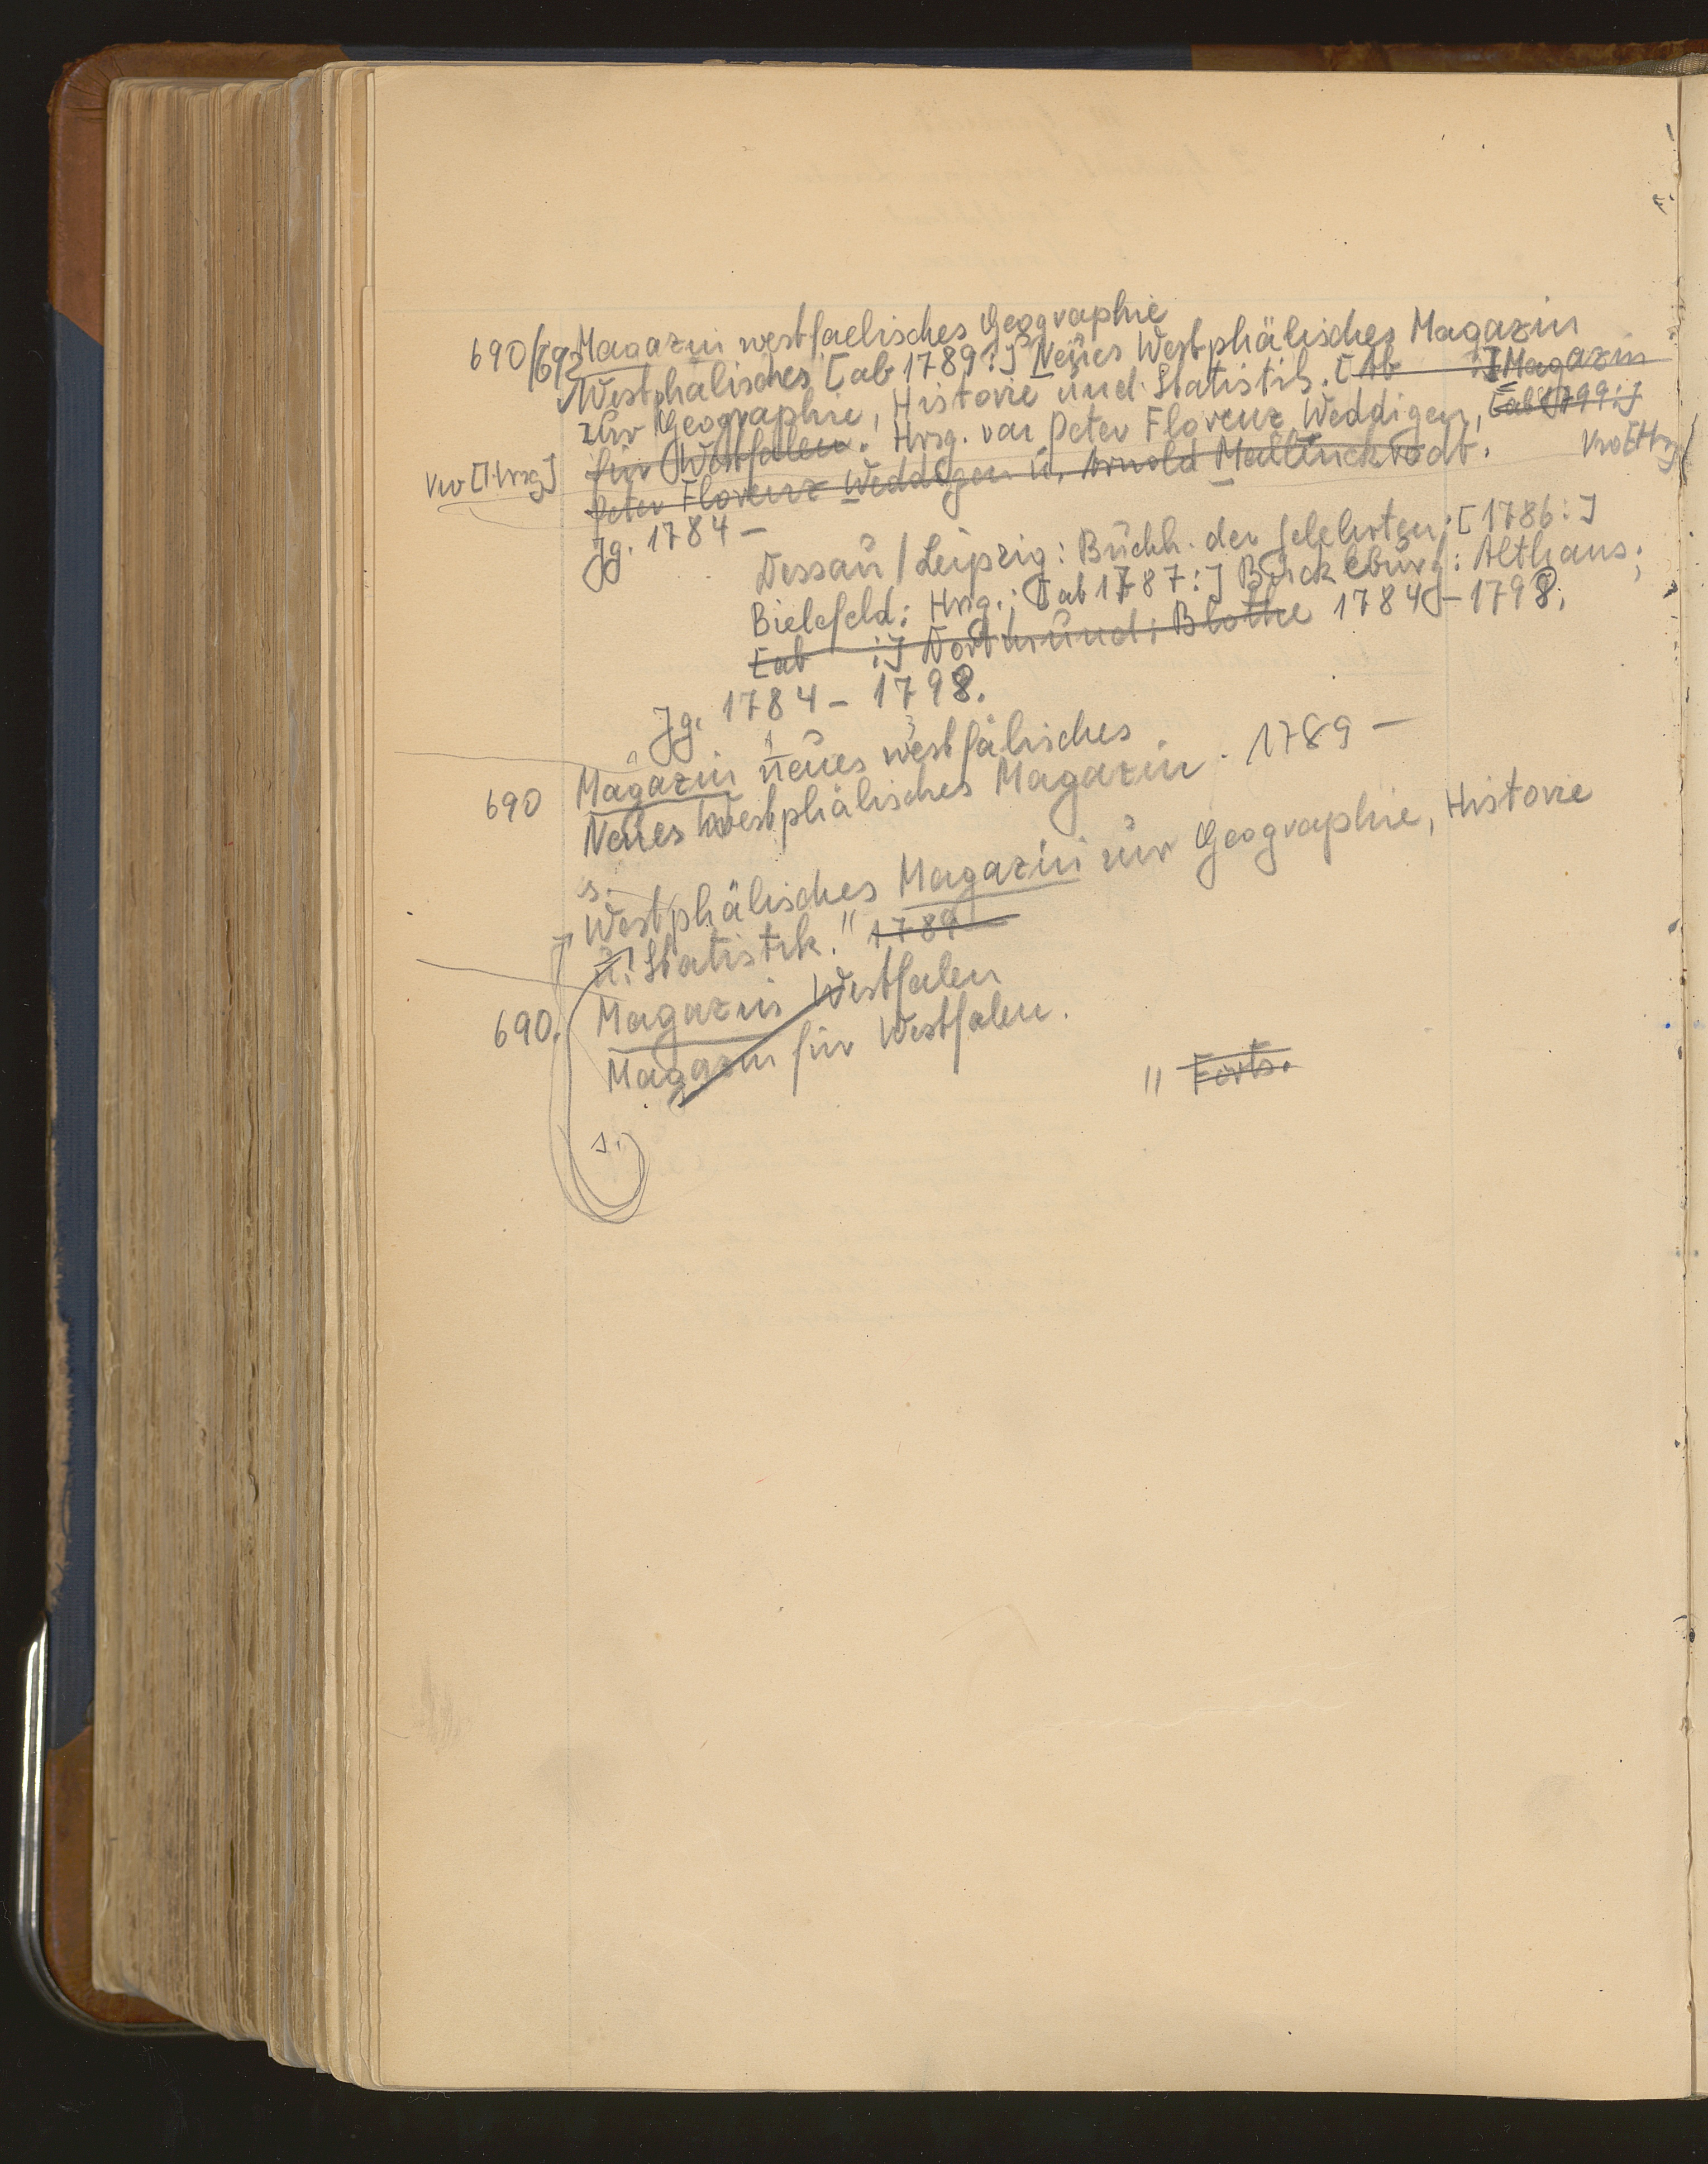 690/692 Magazin westfaelisches Geographie
Westphälisches [ab 1789:] Neues Westphälisches Magazin
zur Geographie, Historie und Statistik. [Ab :] Magazin
für Westfalen. Hrsg. von Peter Florenz Weddigen, [ab 1799:]
Vw [Hrsg] Peter Florenz Weddigen u. Arnold Mallinckrodt. Vw [Hrsg
Jg. 1784 –
Dessau/Leipzig: Buchh. der Gelehrten; [1786:]
Bielefeld: Hrsg.; [ab 1787:] Bückeburg: Althaus;
[ab :] Dortmund: Blothe 1784–1798.
Jg. 1784 – 1798.
Magazin neues westfälisches
690 Neues Westphälisches Magazin. 1789 –
s.
Westphälisches Magazin zur Geographie, Historie
u. Statistik." 1789
Magazin Westfalen
690. Magazin für Westfalen.
" Forts.
s.